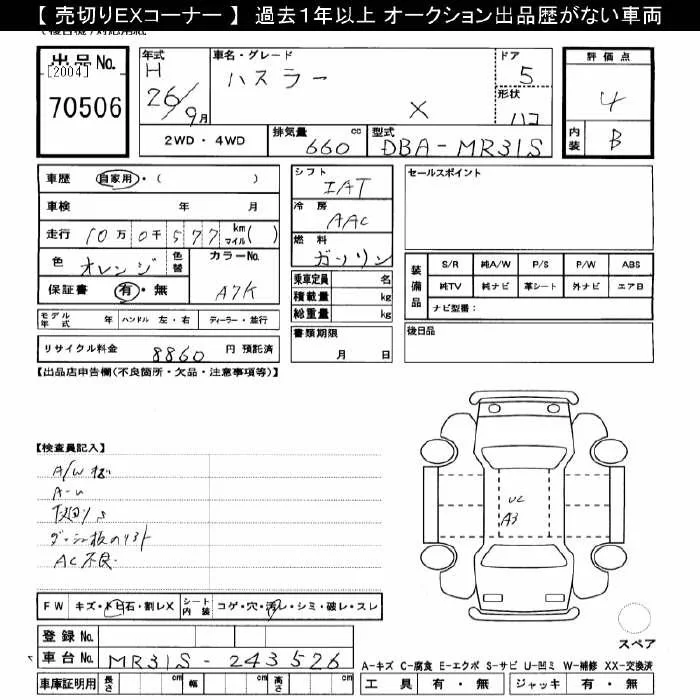 【 売切りEXコーナー 】 過去１年以上 オークション出品歴がない車両
出品 No.
[2004]
70506
年式
H
26/9月
車名・グレード
ハスラー
X
ドア
5
形状
ハコ
評価点
4
内装
B
2WD・4WD
排気量
660
cc
型式
DBA-MR31S
車歴
自家用・( )
車検 年 月
走行 10万0千577 km マイル ( )
色
オレンジ
色替
カラーNo.
A7K
保証書 有・無
モデル年式 年
ハンドル 左・右
ディーラー・並行
リサイクル料金 8860 円 預託済
シフト
IAT
冷房
AAC
燃料
ガソリン
乗車定員 名
積載量 kg
総重量 kg
書類期限
月 日
セールスポイント
装備品
S/R 純A/W P/S P/W ABS
純TV 純ナビ 革シート 外ナビ エアB
ナビ型番：
後日品
【出品店申告欄(不良箇所・欠品・注意事項等)】
【検査員記入】
A/W
A-U
ダッシュ板のリフト
AC不良
UC
A3
FW キズ・トビ石・割レX
シート内装 コゲ・穴・汚レ・シミ・破レ・スレ
登録 No.
車台 No. MR31S-243526
車庫証明用 長さ cm 幅 cm 高さ cm
スペア
A-キズ C-腐食 E-エクボ S-サビ U-凹ミ W-補修 XX-交換済
工具 有・無 ジャッキ 有・無